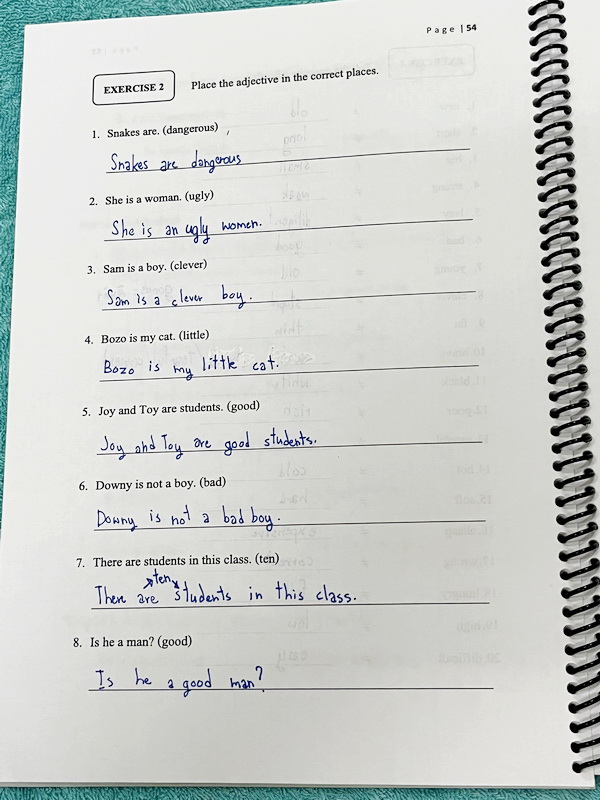 Page | 54
EXERCISE 2 Place the adjective in the correct places.
1. Snakes are. (dangerous)
Snakes are dangerous
2. She is a woman. (ugly)
She is an ugly women.
3. Sam is a boy. (clever)
Sam is a clever boy.
4. Bozo is my cat. (little)
Bozo is my little cat.
5. Joy and Toy are students. (good)
Joy and Toy are good students.
6. Downy is not a boy. (bad)
Downy is not a bad boy.
7. There are students in this class. (ten)
ten
There are students in this class.
8. Is he a man? (good)
Is he a good man?